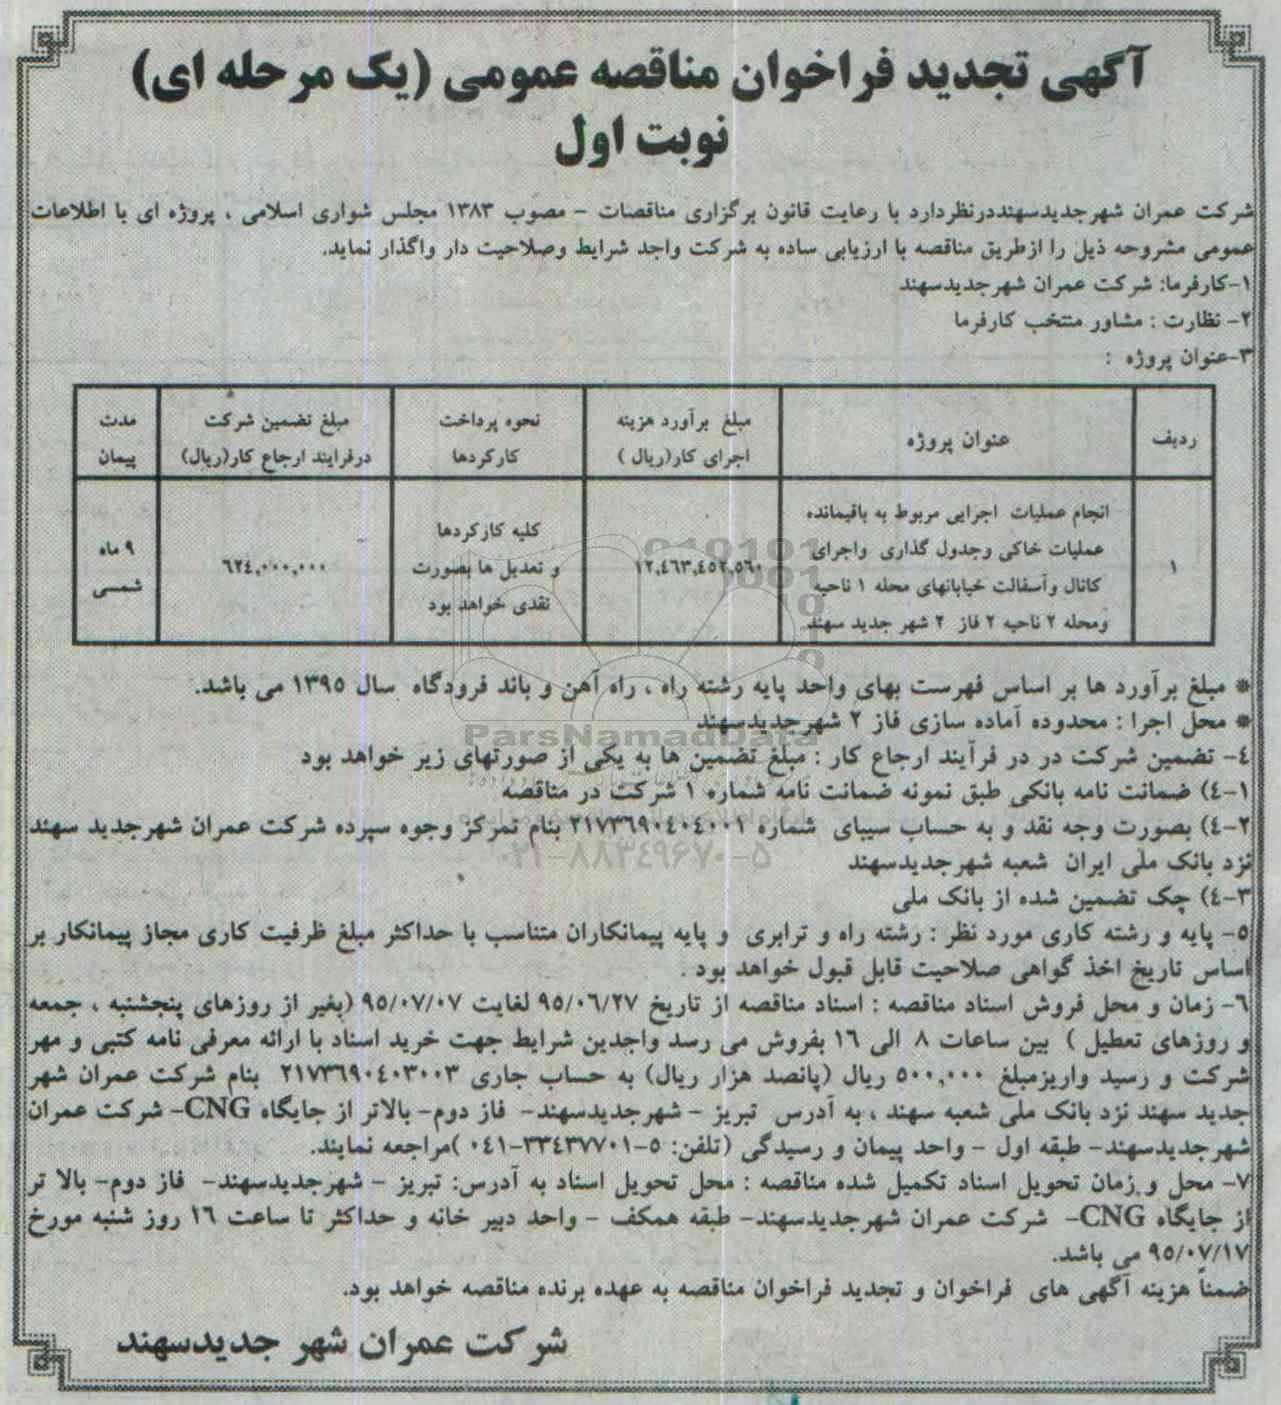 آگهی تجدید فراخوان مناقصه عمومی (یک مرحله ای)
نوبت اول
شرکت عمران شهرجدیدسهنددرنظردارد با رعایت قانون برگزاری مناقصات – مصوب ۱۳۸۳ مجلس شواری اسلامی ، پروژه ای با اطلاعات
عمومی مشروحه ذیل را ازطریق مناقصه با ارزیابی ساده به شرکت واجد شرایط وصلاحیت دار واگذار نماید.
۱-کارفرما: شرکت عمران شهرجدیدسهند
۲- نظارت : مشاور منتخب کارفرما
۳-عنوان پروژه :
ردیف
عنوان پروژه
مبلغ برآورد هزینه
اجرای کار(ریال )
نحوه پرداخت
کارکردها
مبلغ تضمین شرکت
درفرایند ارجاع کار(ریال)
مدت
پیمان
۱
انجام عملیات اجرایی مربوط به باقیمانده
عملیات خاکی وجدول گذاری واجرای
کانال وآسفالت خیابانهای محله ۱ ناحیه
ومحله ۲ ناحیه ۲ فاز ۲ شهر جدید سهند
۱۲,٤٦۳,٤٥۲,٥٦۰
کلیه کارکردها
و تعدیل ها بصورت
نقدی خواهد بود
٦۲٤,۰۰۰,۰۰۰
۹ ماه
شمسی
* مبلغ برآورد ها بر اساس فهرست بهای واحد پایه رشته راه ، راه آهن و باند فرودگاه سال ۱۳۹٥ می باشد.
* محل اجرا : محدوده آماده سازی فاز ۲ شهرجدیدسهند
ParsNamadData
٤- تضمین شرکت در در فرآیند ارجاع کار : مبلغ تضمین ها به یکی از صورتهای زیر خواهد بود
٤-۱) ضمانت نامه بانکی طبق نمونه ضمانت نامه شماره ۱ شرکت در مناقصه
٤-۲) بصورت وجه نقد و به حساب سیبای شماره ۲۱۷۳٦۹۰٤۰٤۰۰۱ بنام تمرکز وجوه سپرده شرکت عمران شهرجدید سهند
نزد بانک ملی ایران شعبه شهرجدیدسهند
۰۲۱-۸۸۳۴۹۶۷۰-۵
٤-۳) چک تضمین شده از بانک ملی
٥- پایه و رشته کاری مورد نظر : رشته راه و ترابری و پایه پیمانکاران متناسب با حداکثر مبلغ ظرفیت کاری مجاز پیمانکار بر
اساس تاریخ اخذ گواهی صلاحیت قابل قبول خواهد بود .
٦- زمان و محل فروش اسناد مناقصه : اسناد مناقصه از تاریخ ۹٥/۰٦/۲۷ لغایت ۹٥/۰۷/۰۷ (بغیر از روزهای پنجشنبه ، جمعه
و روزهای تعطیل ) بین ساعات ۸ الی ۱٦ بفروش می رسد واجدین شرایط جهت خرید اسناد با ارائه معرفی نامه کتبی و مهر
شرکت و رسید واریزمبلغ ٥۰۰,۰۰۰ ریال (پانصد هزار ریال) به حساب جاری ۲۱۷۳٦۹۰٤۰۳۰۰۳ بنام شرکت عمران شهر
جدید سهند نزد بانک ملی شعبه سهند ، به آدرس تبریز – شهرجدیدسهند- فاز دوم- بالاتر از جایگاه CNG- شرکت عمران
شهرجدیدسهند- طبقه اول - واحد پیمان و رسیدگی (تلفن: ٥-۳۳٤۳۷۷۰۱-۰٤۱ )مراجعه نمایند.
۷- محل و زمان تحویل اسناد تکمیل شده مناقصه : محل تحویل اسناد به آدرس: تبریز – شهرجدیدسهند- فاز دوم- بالا تر
از جایگاه CNG- شرکت عمران شهرجدیدسهند- طبقه همکف - واحد دبیر خانه و حداکثر تا ساعت ۱٦ روز شنبه مورخ
۹٥/۰۷/۱۷ می باشد.
ضمناً هزینه آگهی های فراخوان و تجدید فراخوان مناقصه به عهده برنده مناقصه خواهد بود.
شرکت عمران شهر جدیدسهند